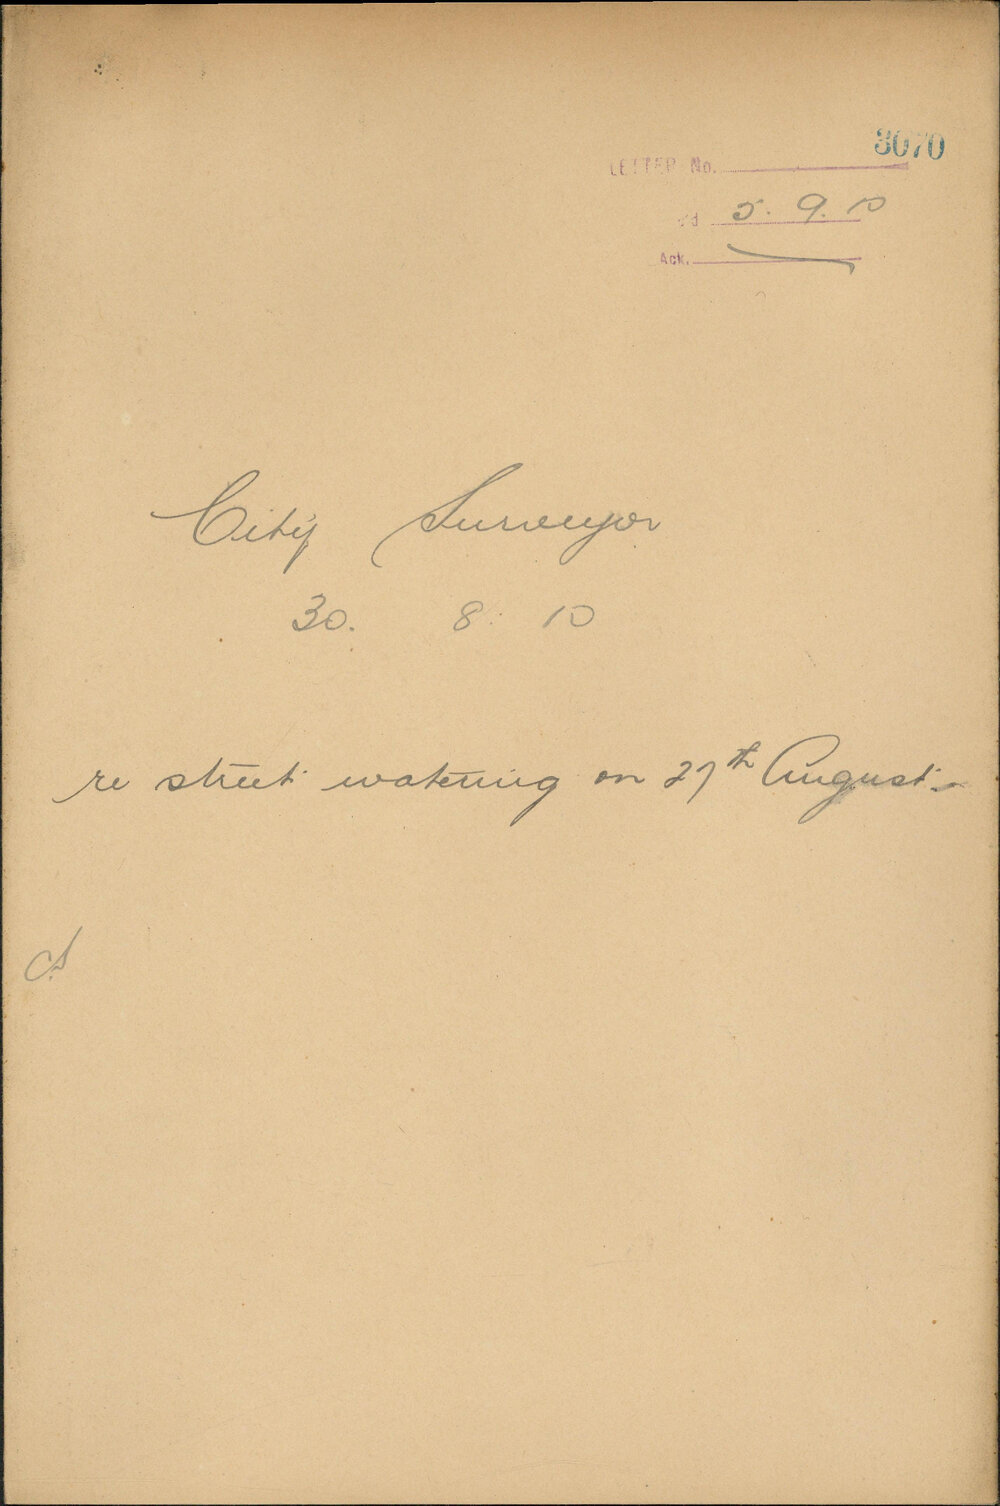 3070
LETTER No.
'd 5. 9. 10
Ack.
City Surveyor
30. 8. 10
re street watering on 27th August.
CS